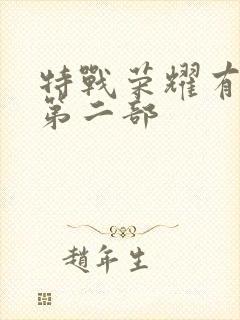 特戰荣耀有
第二部
趙年生